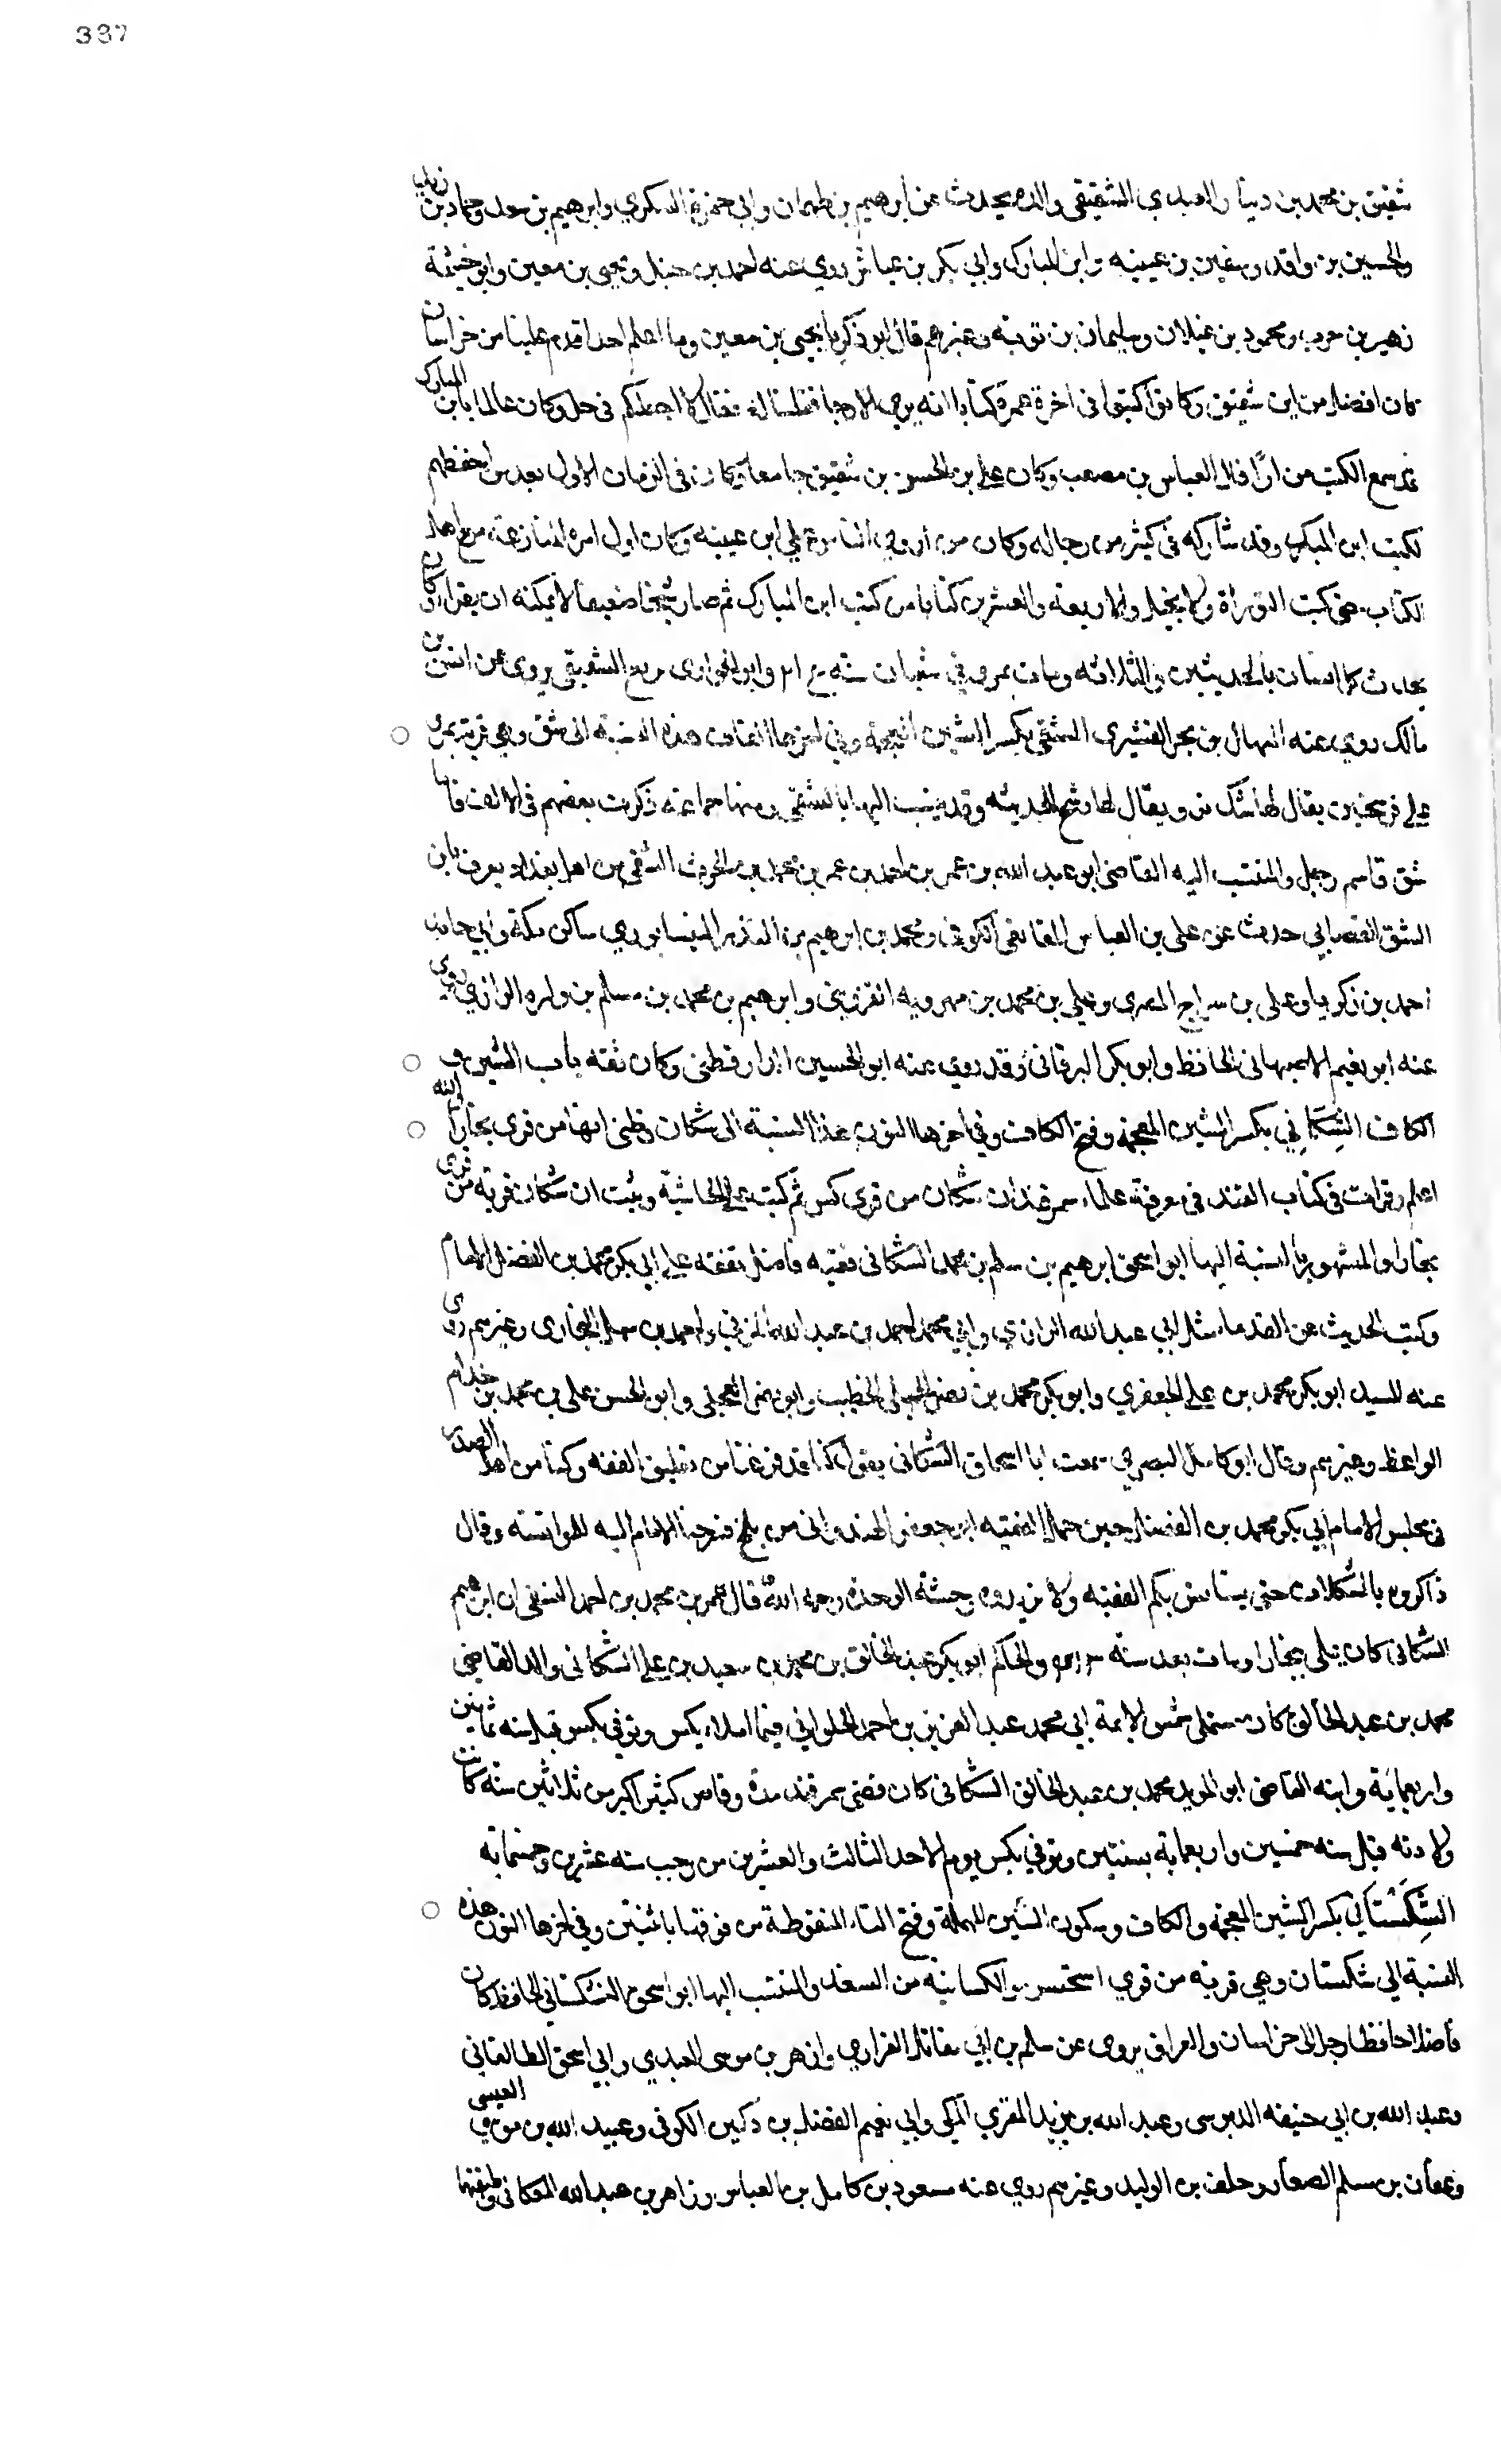 337
شقيق بن محمد بن دينار العبدي الشقيقي والده يحدث عن ابرهيم بن طهمان وابي حمزة السكري وابرهيم بن سعد وحماد بن زيد
والحسين بن واقد وسفين بن عيينه وابن المبارك وابي بكر بن عياش روي عنه احمد بن حنبل ويحيى بن معين وابو خيثمة
زهير بن حرب ومحمود بن غيلان وسليمان بن توبه وغيرهم قال ابو ذكريا يحيى بن معين وما اعلم احدا قدم علينا من خراسان
كان افضل من ابن شقيق وكانوا كتبوا في اخرة عمره كتابا انه يرى الارجا فقلنا له فقال لا اجعلكم في حل وكان عالما بابن المبارك
قد سمع الكتب مرارا قال العباس بن مصعب وكان علي بن الحسن بن شقيق جامعا وكان في الزمان الاول يعد من احفظهم
لكتب ابن المبارك وقد شاركه في كثير من رجاله وكان من اروى الناس علي ابن عيينه وكان اول امره المنازعة مع اهل
الكتاب حتى كتب التوراة والانجيل والاربعة والعشرين كتابا من كتب ابن المبارك ثم صار شيخا ضعيفا لا يمكنه ان يقرا وكان
يحدث كل انسان بالحديثين والثلاثه ومات بمرو في شعبان سنه ٢١٤ وابو الحواري مربع الشقيقي يروي عن انس بن
مالك روي عنه المنهال بن بحر القشيري الشقي بكسر الشين المعجمة وفي اخرها القاف هذه النسبة الى شق وهي قرية بمرو
علي فرسخين يقال لها شك ويقال لها شج الحديثه وقد ينسب اليها بالشقي ومنها جماعة ذكرت بعضهم في الالف فاما
شق قاسم رجل والمنتسب اليه القاضي ابو عبد الله بن عمر بن احمد بن عمر بن محمد بن الحرث الشقي من اهل بغداد يعرف بابن
الشق القصباني حدث عن علي بن العباس المقانعي الكوفي ومحمد بن ابرهيم بن المنذر النيسابوري ساكن مكة وابي حامد
احمد بن زكريا وعلي بن سراج المصري وعلي بن محمد بن مهرويه القزويني وابرهيم بن محمد بن مسلم بن واره الرازي روي
عنه ابو نعيم الاصبهاني الحافظ وابو بكر البرقاني وقد روي عنه ابو الحسين الدارقطني وكان ثقه باب الشين و
الكاف الشِكَانِي بكسر الشين المعجمة وفتح الكاف وفي اخرها النون هذا النسبة الى شكان وظني انها من قرى بخارا والله
اعلم وقرات في كتاب القند في معرفة علماء سمرقند ان شكان من قرى كس ثم كتب على الحاشية وبيت ان شكان قريه من قرى
بخارا والمشهور بالنسبة اليها ابو اسحق ابرهيم بن سلم بن محمد الشكاني فقيه فاضل تفقه علي ابي بكر محمد بن الفضل الامام
وكتب الحديث عن القدماء مثل ابي عبد الله الرازي وابي محمد احمد بن عبد الله المزني واحمد بن سهل البخاري وغيرهم روى
عنه السيد ابو بكر محمد بن علي الجعفري وابو بكر محمد بن نصر الجميلي الخطيب وابو نصر العجلي وابو الحسن علي بن محمد بن خدام
الواعظ وغيرهم وقال ابو كامل البصري سمعت ابا اسحاق الشكاني يقول كنا قد فرغنا من تعليق الفقه وكنا من اهل الصدر
في مجلس الامام ابي بكر محمد بن الفضل حين حمل الفقيه ابو جعفر الهندواني من بلخ فوجهنا الامام اليه للموانسة وقال
ذاكروه بالمشكلات حتى يستانس بكم الفقيه ولا تزيدوه وحشة الوحدة رحمه الله قال عمر بن محمد بن احمد النسفي ان ابرهيم
الشكاني كان يملي ببخارا ومات بعد سنة والحاكم ابو بكر عبد الخالق بن محمد بن سعيد بن علي الشكاني والد القاضي
محمد بن عبد الخالق كان مستملي شمس الايمة ابي محمد عبد العزيز بن احمد الحلواني فيما املاه بكس وتوفي بكس قبل سنه ثمانين
واربعماية وابنه القاضي ابو المويد محمد بن عبد الخالق الشكاني كان قضى سمرقند مدة وقاس كثير اكبر من ثلاثين سنة كانت
ولادته قبل سنه خمسين واربعماية بسنتين وتوفي بكس يوم الاحد الثالث والعشرين من رجب سنه عشرين وخمسماية
الشِّكِسْتَانِي بكسر الشين المعجمة والكاف وسكون السين المهملة وفتح التاء المنقوطة من فوقها باثنتين وفي اخرها النون هذه
النسبة الى شكستان وهي قريه من قري اشتيخن والكسانيه من السغد والمنتسب اليها ابو اسحق الشكستاني الحافظ كان
فاضلا حافظا رحل الى خراسان والعراق يروي عن سلم بن ابي مقاتل الفزاري وازهر بن موسى العبدي وابي اسحق الطالقاني
وعبد الله بن ابي حنيفه الدبوسي وعبد الله بن يزيد المقري المكي وابي نعيم الفضل بن دكين الكوفي وعبيد الله بن موسى العبسي
وعفان بن مسلم الصفار وخلف بن الوليد وغيرهم روي عنه مسعود بن كامل بن العباس وزاهر بن عبد الله المعكاني وطبقتهما